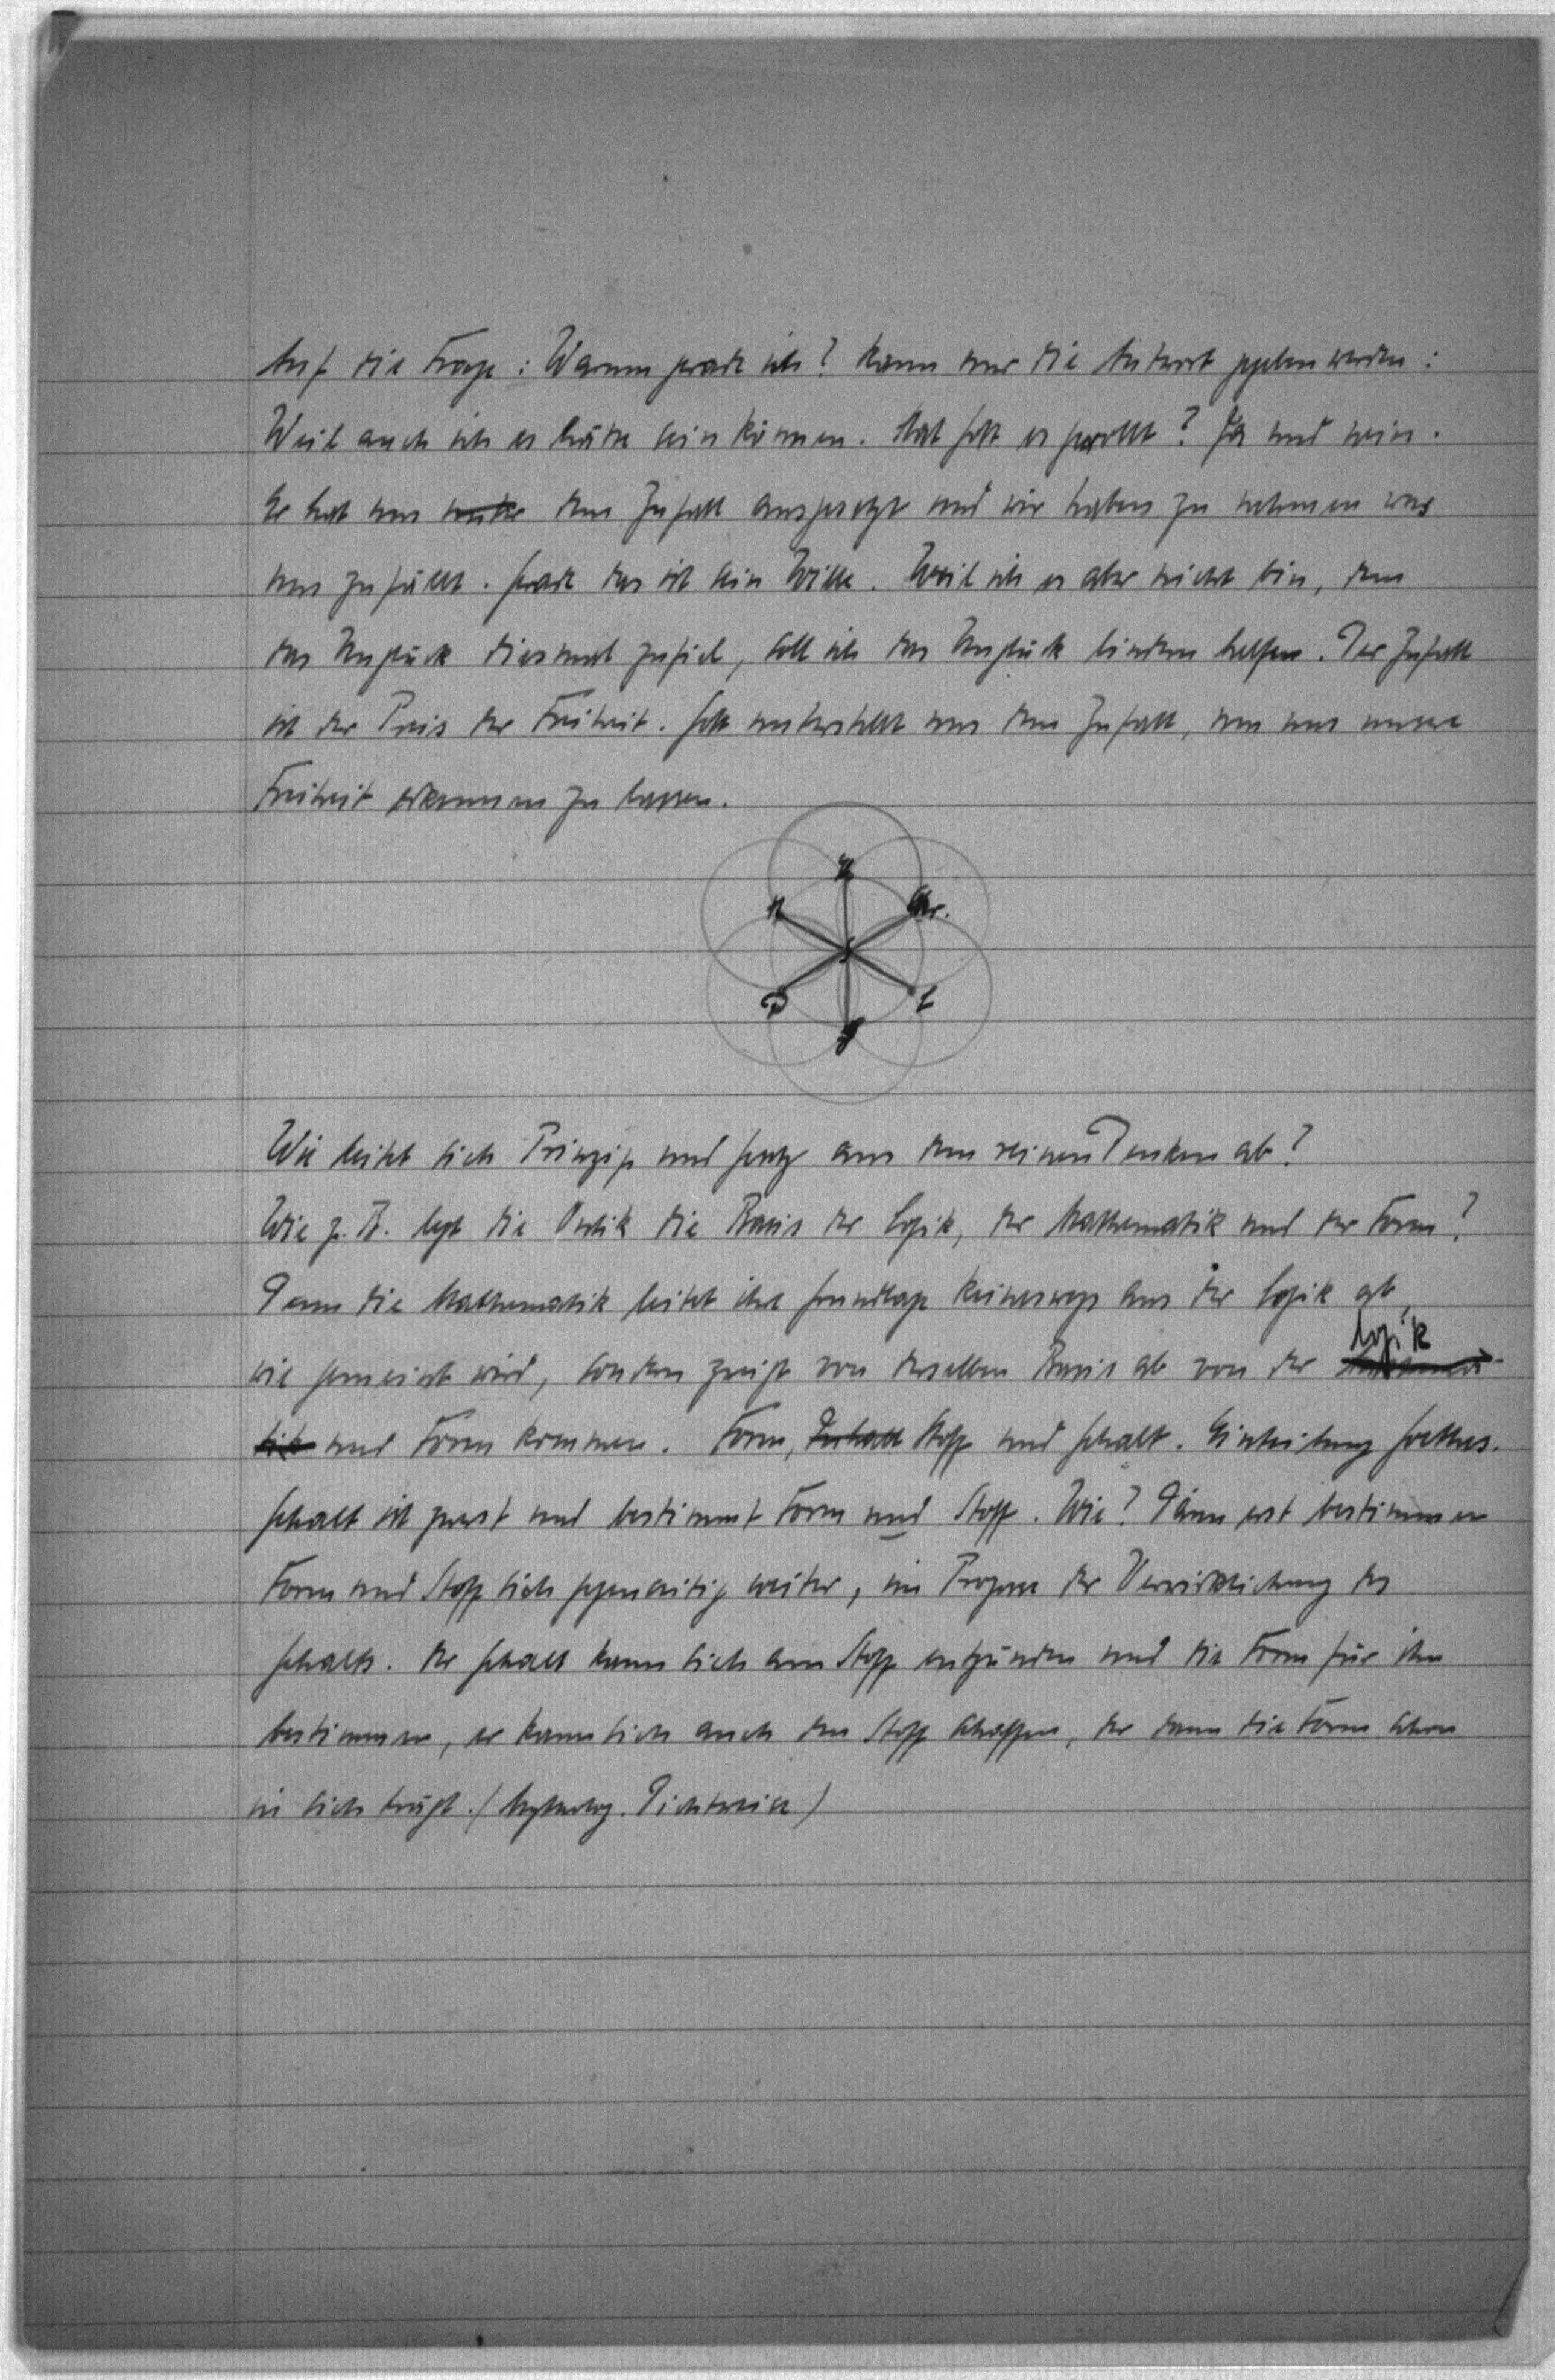 Auf die Frage: Warum grade ich? kann nur die Antwort gegeben werden:
Weil auch ich es hätte sein können. Hat Gott es gewollt? Ja und nein.
Er hat uns unter dem Zufall ausgesetzt und wir haben zu nehmen was
uns zufällt. Grade das ist sein Wille. Weil ich es aber nicht bin, dem
das Unglück diesmal zufiel, soll ich das Unglück lindern helfen. Der Zufall
ist der Preis der Freiheit. Gott unterstellt uns dem Zufall, um uns unsere
Freiheit erkennen zu lassen.
Gr.
Wie leitet sich Prinzip und Gesetz aus dem reinen Denken ab?
Wie z. B. legt die Ontik die Basis der Logik, der Mathematik und der Form?
Denn die Mathematik leitet ihre Grundlage keineswegs aus der Logik ab,
Logik
wie gemeint wird, sondern zweigt von derselben Basis ab von der
tik und Form kommen. Form, Inhalt Stoff und Gehalt. Einteilung Goethes.
Gehalt ist zuerst und bestimmt Form und Stoff. Wie? Dann erst bestimmen
Form und Stoff sich gegenseitig weiter, im Prozess der Verwirklichung des
Gehalts. Der Gehalt kann sich am Stoff entzünden und die Form für ihn
bestimmen, er kann sich auch den Stoff schaffen, der dann die Form schon
in sich trägt. ( Dichtweise)